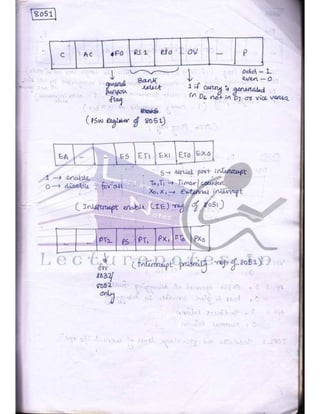 8051
C AC FO RS1 RS0 OV - P
general purpose flag
Bank select
1 if carry is generated
in D6 not in D7 or vice versa
odd - 1
even - 0
(PSW Register of 8051)
EA - - ES ET1 EX1 ET0 EX0
1 → enable
0 → disable for all
S → serial port interrupt
T0, T1 → Timer/counter
X0, X1 → External interrupt
(Interrupt enable (IE) reg of 8051)
- - PT2 PS PT1 PX1 PT0 PX0
for
8032/
8052
only
(Interrupt priority reg of 8051)
Lecturenotes.in